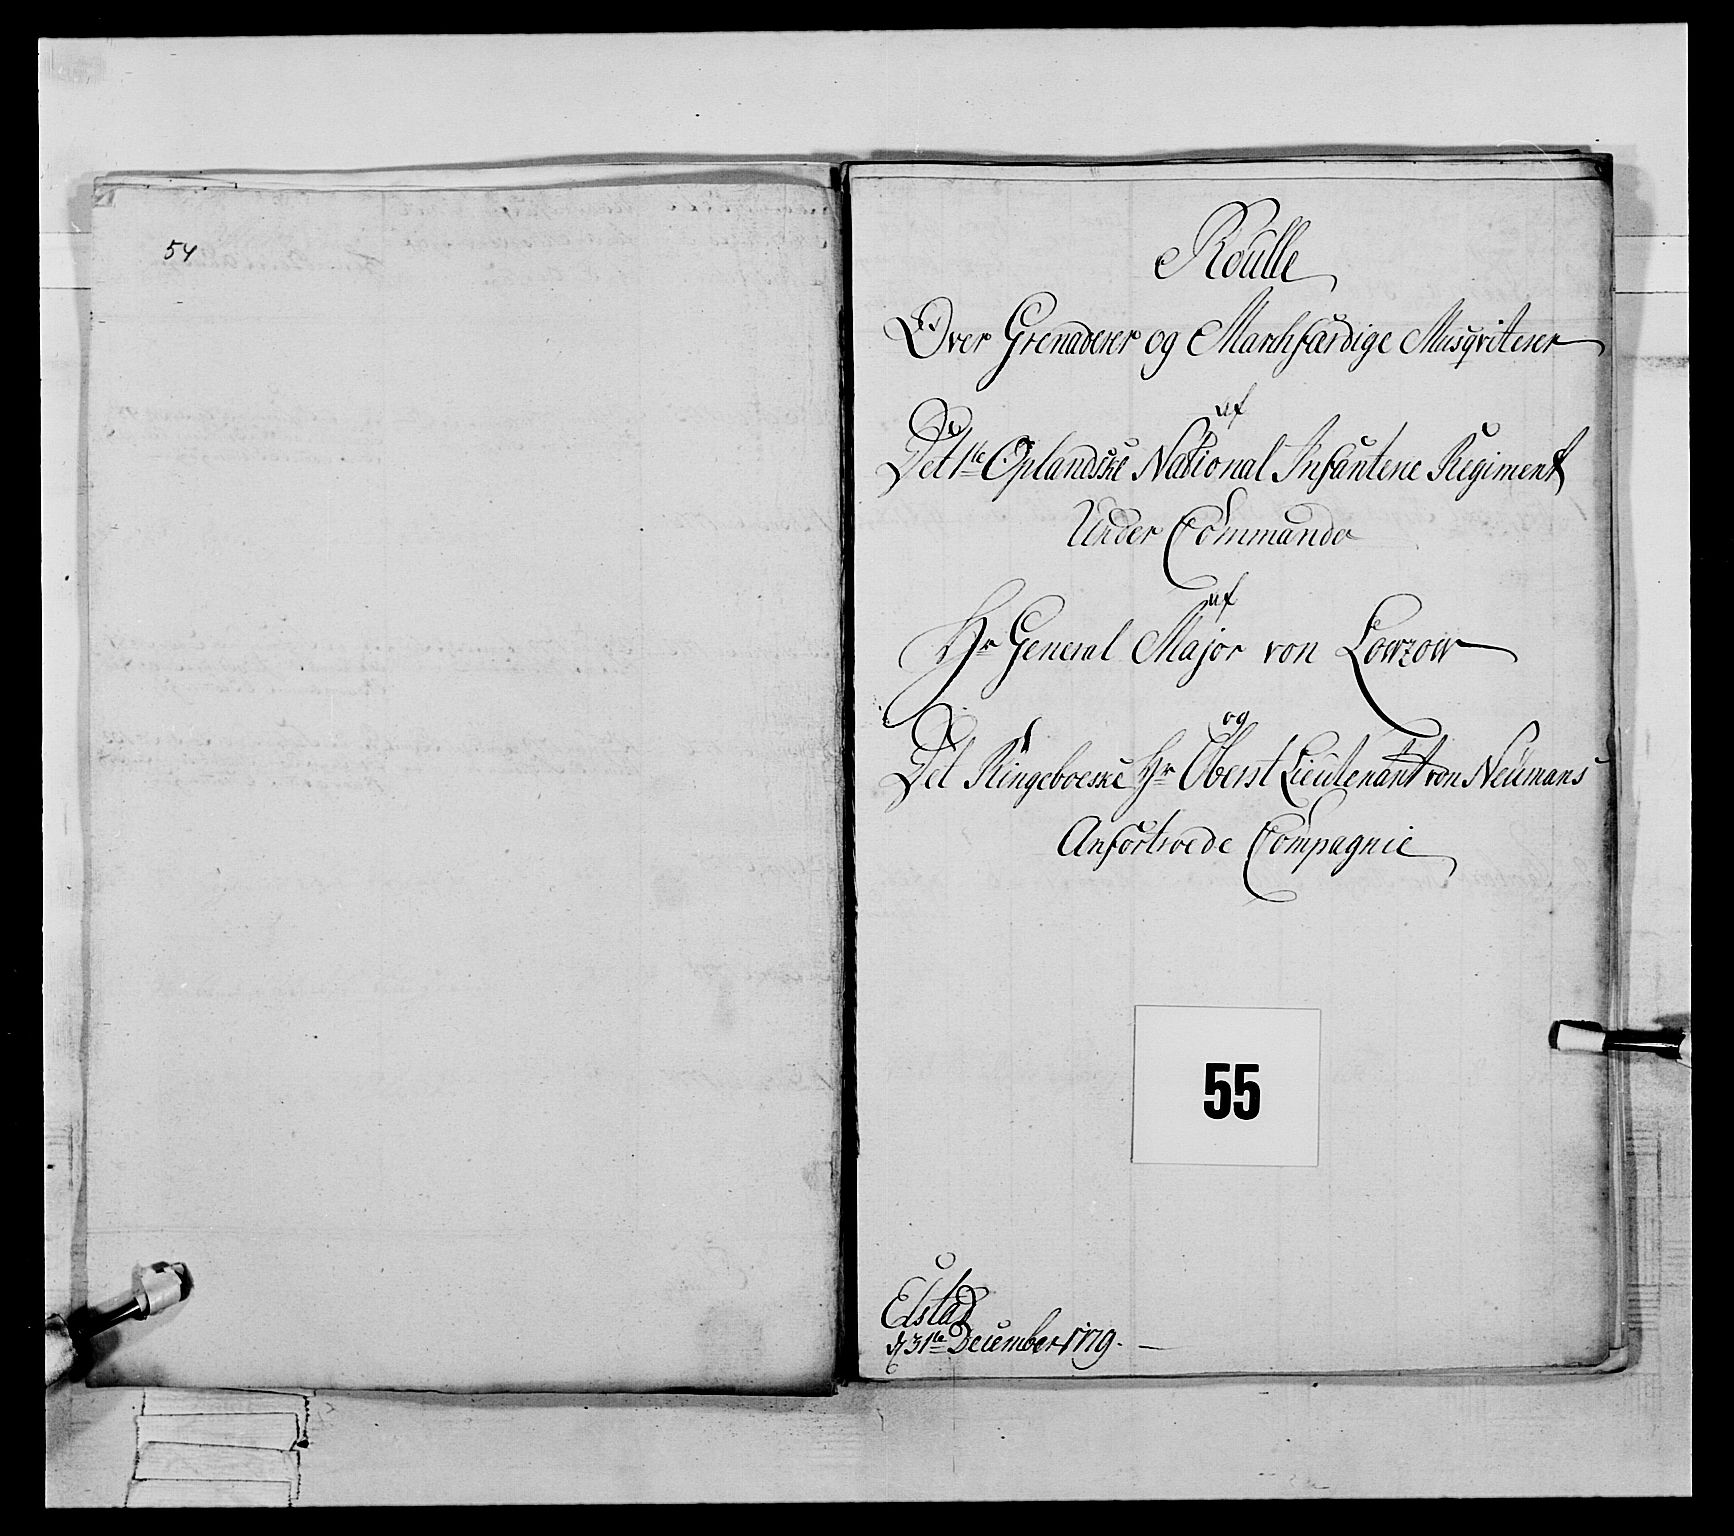 54
Roulle
Over Grenaderer og Marchfærdige Musqviterer
af
Det 1ste Oplandske National Infanterie Regiment
Under Commando
af
Hr General Major von Lowzow
og
Det Ringeboeske Hr Oberst Lieutenant von Neumans
Anfortroede Compagnie
55
Elstad
d 31te December 1779.